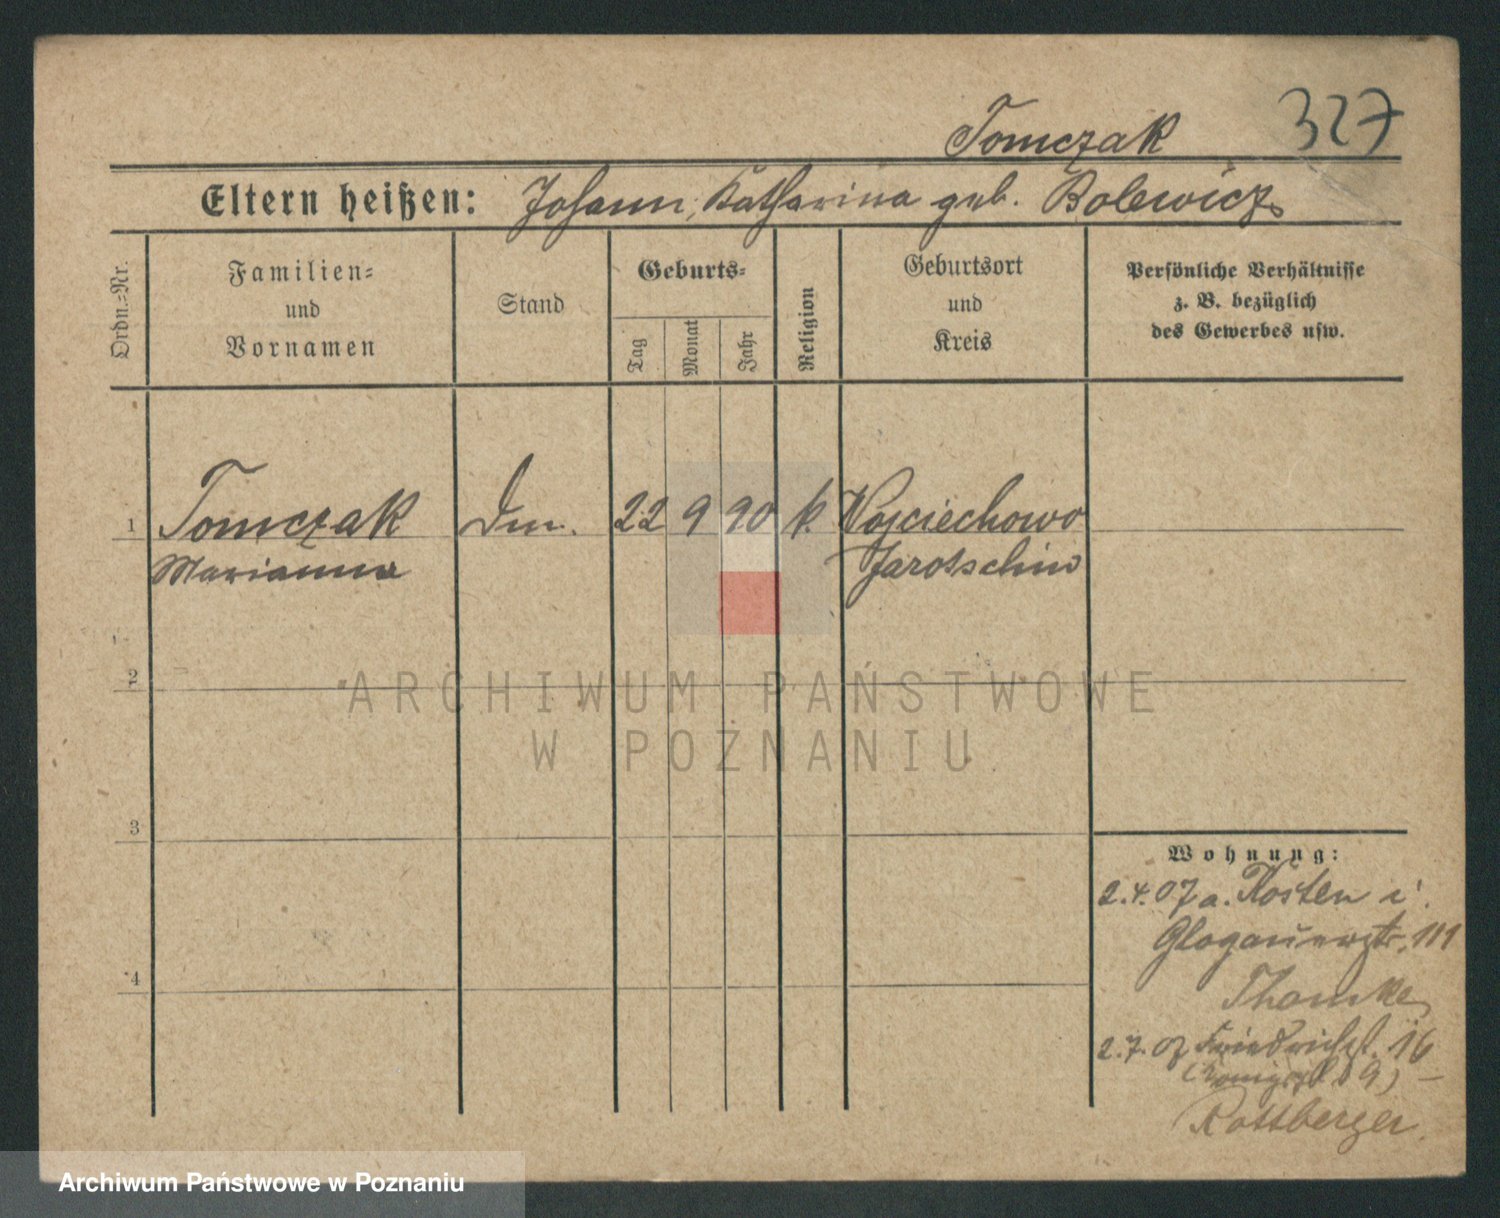 327
Tomczak
Eltern heißen: Johann, Katharina geb. Bolewicz
Ordn.=Nr.
Familien=
und
Vornamen
Stand
Geburts=
Tag
Monat
Jahr
Religion
Geburtsort
und
Kreis
Persönliche Verhältnisse
z. B. bezüglich
des Gewerbes usw.
1 Tomczak Dm. 22 9 90 k. Wojciechowo
Marianna Jarotschin
2
ARCHIWUM PAŃSTWOWE
W POZNANIU
3
4
Wohnung:
2.4.07 a. Kosten i.
Glogauerstr. 111
Thomke
2.7.07 Friedrichst. 16
9) –
Rottberger
Archiwum Państwowe w Poznaniu